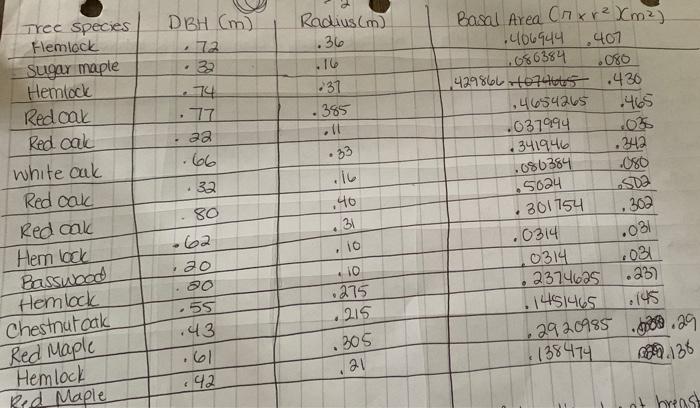 Tree species DBH (m) Radius (m) Basal Area (π x r²)(m²)
Hemlock .72 .36 .406944 .407
Sugar maple .32 .16 .080384 .080
Hemlock .74 .37 .429866 .430
Red oak .77 .385 .4654265 .465
Red oak .22 .11 .037994 .038
White oak .66 .33 .341946 .342
Red oak .32 .16 .080384 .080
Red oak .80 .40 .5024 .502
Hemlock .62 .31 .301754 .302
Basswood .20 .10 .0314 .031
Hemlock .20 .10 .0314 .031
Chestnut oak .55 .275 .2374625 .237
Red Maple .43 .215 .1451465 .145
Hemlock .61 .305 .2920985 .29
Red Maple .42 .21 .138474 .138
breast